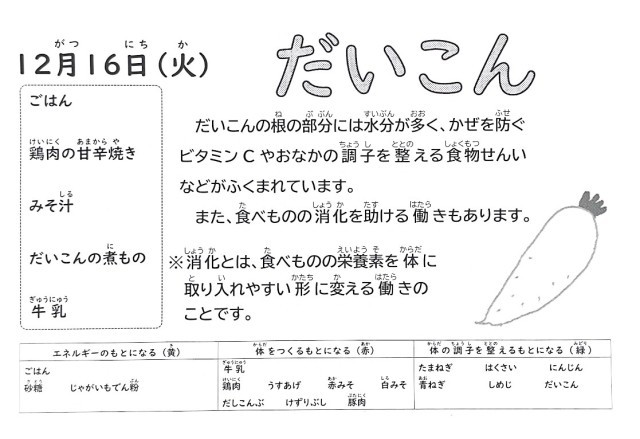 12月16日（火）
だいこん
ごはん
鶏肉の甘辛焼き
みそ汁
だいこんの煮もの
牛乳
だいこんの根の部分には水分が多く、かぜを防ぐ
ビタミンCやおなかの調子を整える食物せんい
などがふくまれています。
また、食べものの消化を助ける働きもあります。
※消化とは、食べものの栄養素を体に
取り入れやすい形に変える働きの
ことです。
エネルギーのもとになる（黄）
ごはん
砂糖 じゃがいもでん粉
体をつくるもとになる（赤）
牛乳
鶏肉 うすあげ 赤みそ 白みそ
だしこんぶ けずりぶし 豚肉
体の調子を整えるもとになる（緑）
たまねぎ はくさい にんじん
青ねぎ しめじ だいこん